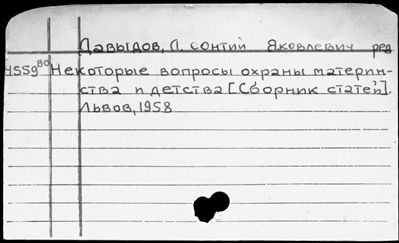 Давыдов, Л. сонтий Яковлевич ред
HSSg⁸⁰ Некоторые вопросы охраны материн-
ства и детства [Сборник статей].
Львов, 1958